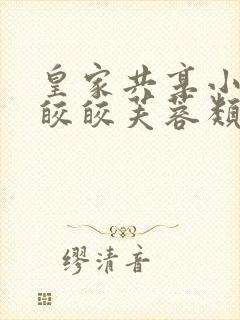 皇家共享小
皎皎芙蓉类
缪清音